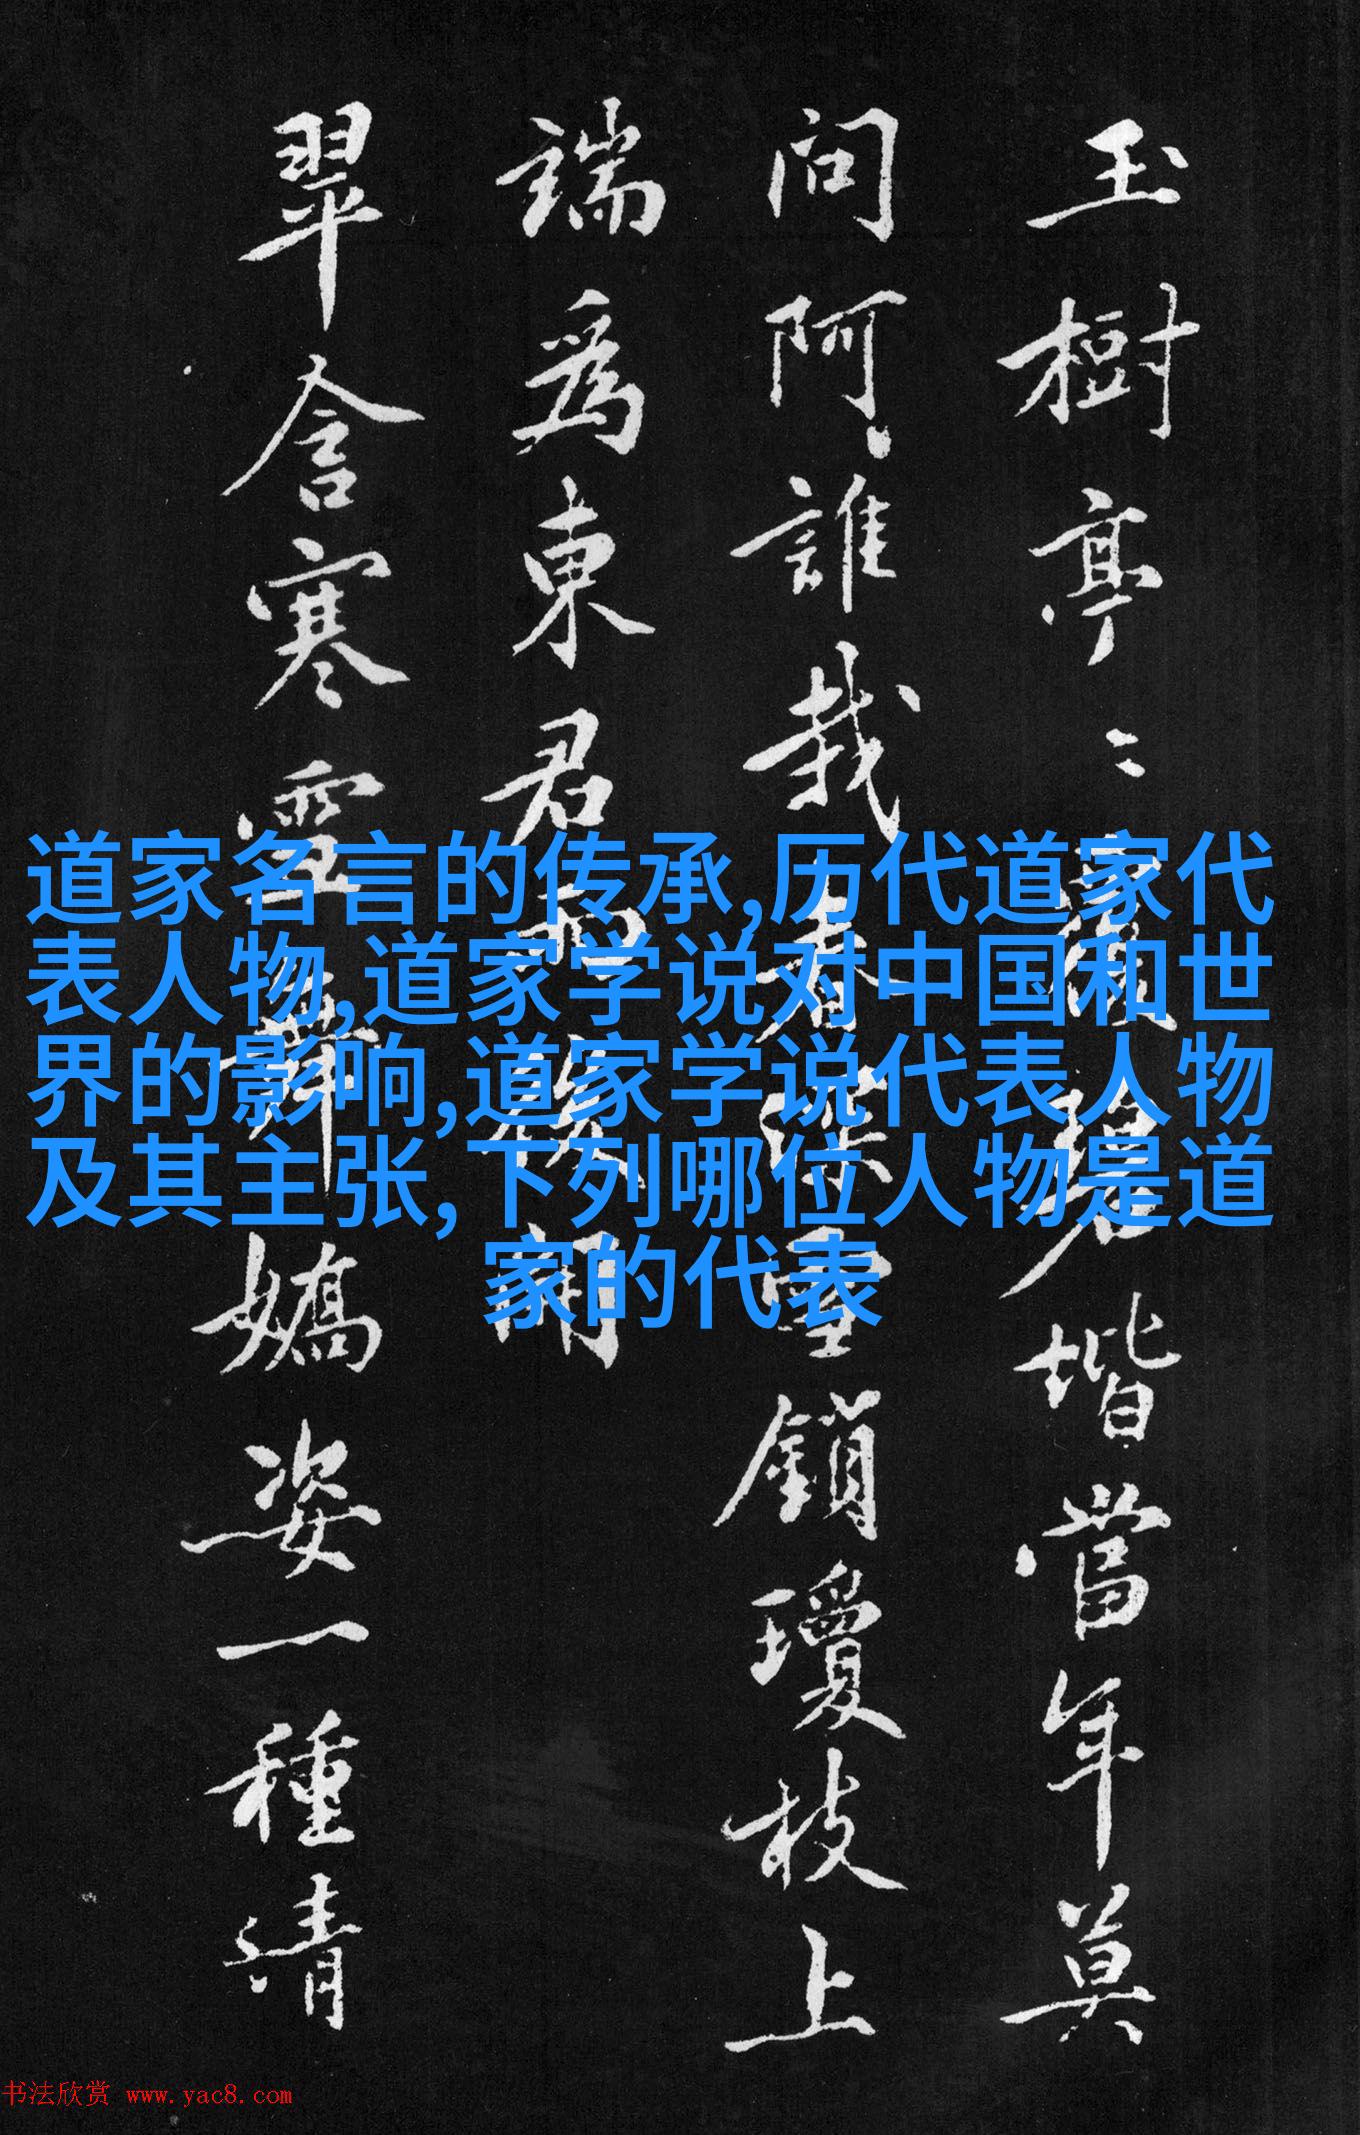 玉樹亭〻
瑤階當年莫
問阿誰栽
春深雪鎖瓊枝上
端爲東君
開
翠含寒雪
嬌姿一種清
道家名言的传承,历代道家代
表人物,道家学说对中国和世
界的影响,道家学说代表人物
及其主张,下列哪位人物是道
家的代表
书法欣赏 www.yac8.com